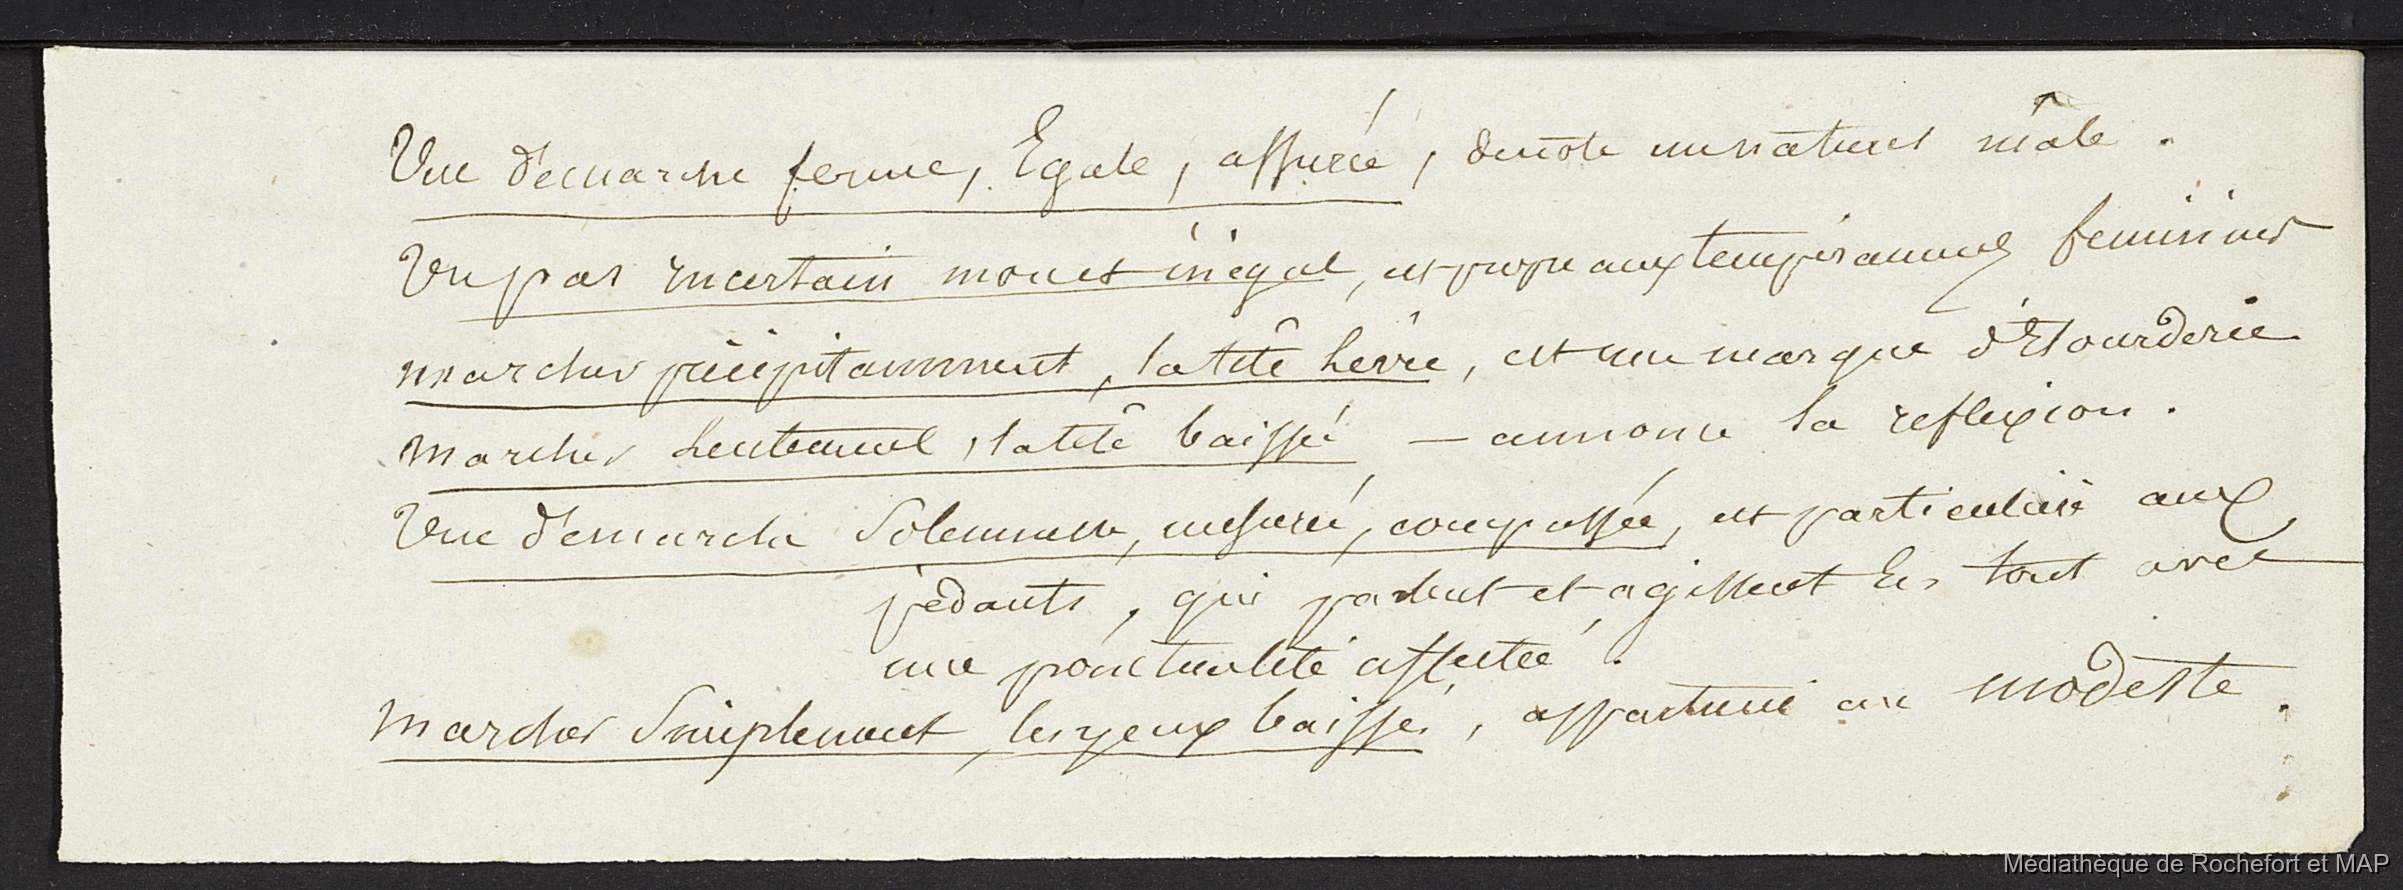 Une démarche ferme, Egale, assurée, denote un naturel mâle.
Un pas incertain mou et inégal, est propre aux temperamens feminines
marcher précipitamment, la tête levée, est une marque d'Etourderie
marcher lentement, la tête baissée — annonce la reflexion.
Une démarche Solemnelle, mesurée, compassée, est particulière aux
pédants, qui parlent et agissent en tout avec
une ponctualité affectée.
marcher Simplement, les yeux baissés, appartient au modeste.
Médiathèque de Rochefort et MAP